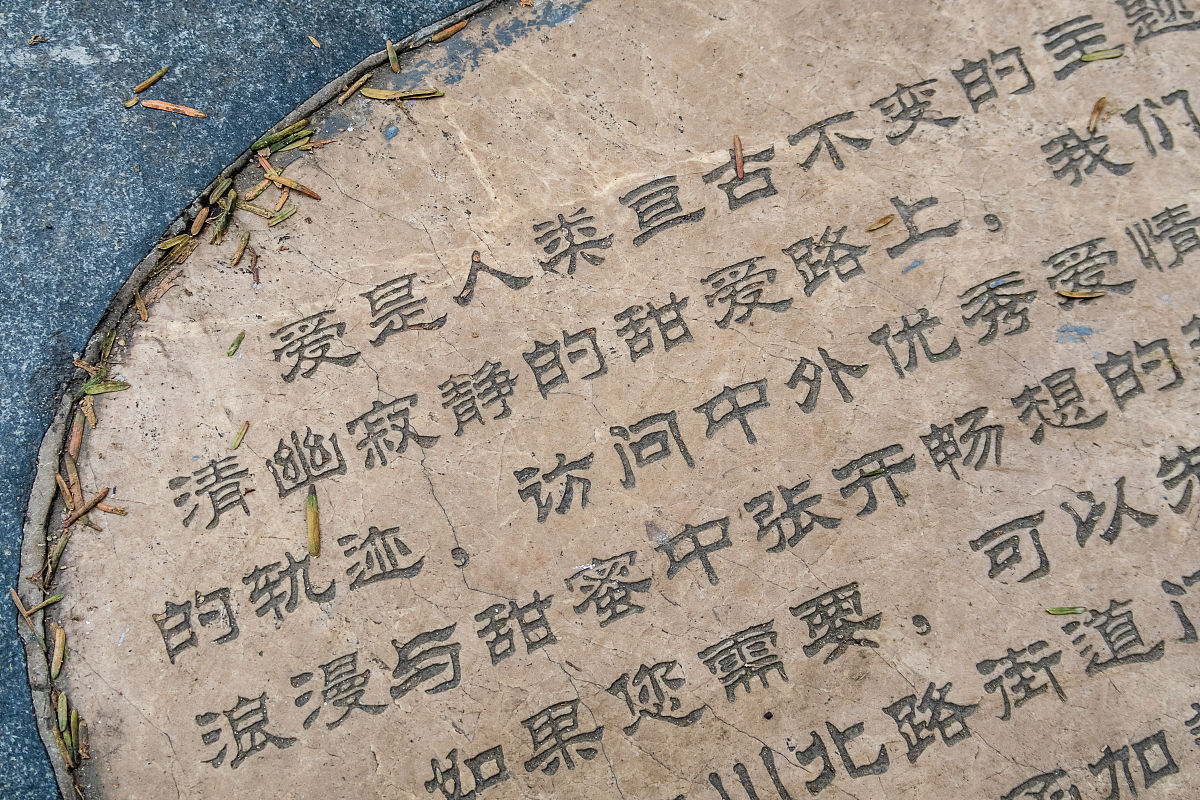 爱是人类亘古不变的主题
清幽寂静的甜爱路上，我们
的轨迹，访问中外优秀爱情
浪漫与甜蜜中张开畅想的
如果您需要，可以先
川北路街道
加